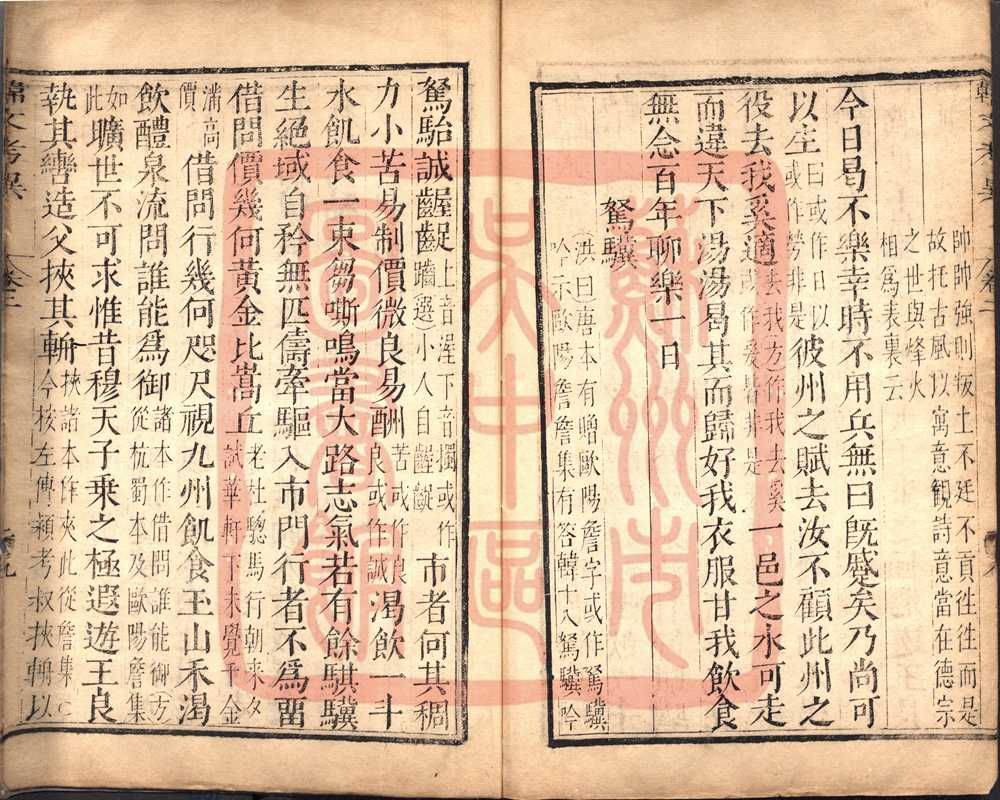 帥帥強則叛土不廷不貢往往而是
故托古風以寓意觀詩意當在德宗
之世與烽火
相爲表裏云
今日曷不樂幸時不用兵無曰旣蹙矣乃尚可
以生曰或作日以或作勞非是彼州之賦去汝不顧此州之
役去我奚適去我方作我去奚或作爰皆非是一邑之水可走
而違天下湯湯曷其而歸好我衣服甘我飲食
無念百年聊樂一日
駑驥
洪曰唐本有贈歐陽詹字或作駑驥
吟示歐陽詹詹集有答韓十八駑驥吟
駑駘誠齷齪上音渥下音擉或作躅躖小人自齷齪市者何其稠
力小苦易制價微良易酬苦或作良良或作誠渴飲一斗
水飢食一束芻嘶鳴當大路志氣若有餘騏驥
生絕域自矜無匹儔牽驅入市門行者不爲畱
借問價幾何黃金比嵩丘老杜驄馬行朝来久試華軒下未覺千金
滿高價借問行幾何咫尺視九州飢食玉山禾渴
飲醴泉流問誰能爲御諸本作借問誰能御方從杭蜀本及歐陽詹集
如此曠世不可求惟昔穆天子乘之極遐遊王良
執其轡造父挾其輈挾諸本作夾此從詹集○今按左傳潁考叔挾輈以
韓文考異
卷二